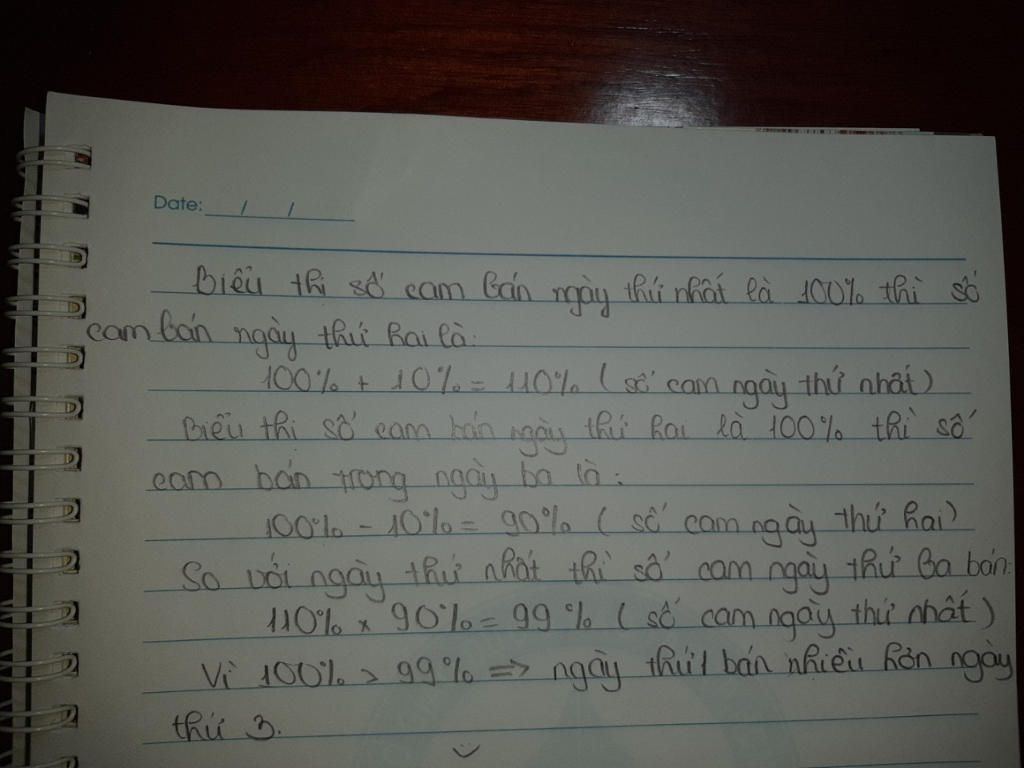 Date: / /
Biểu thị số cam bán ngày thứ nhất là 100% thì số
cam bán ngày thứ hai là:
100% + 10% = 110% (số cam ngày thứ nhất)
Biểu thị số cam bán ngày thứ hai là 100% thì số
cam bán trong ngày ba là:
100% - 10% = 90% (số cam ngày thứ hai)
So với ngày thứ nhất thì số cam ngày thứ ba bán:
110% x 90% = 99% (số cam ngày thứ nhất)
Vì 100% > 99% => ngày thứ 1 bán nhiều hơn ngày
thứ 3.